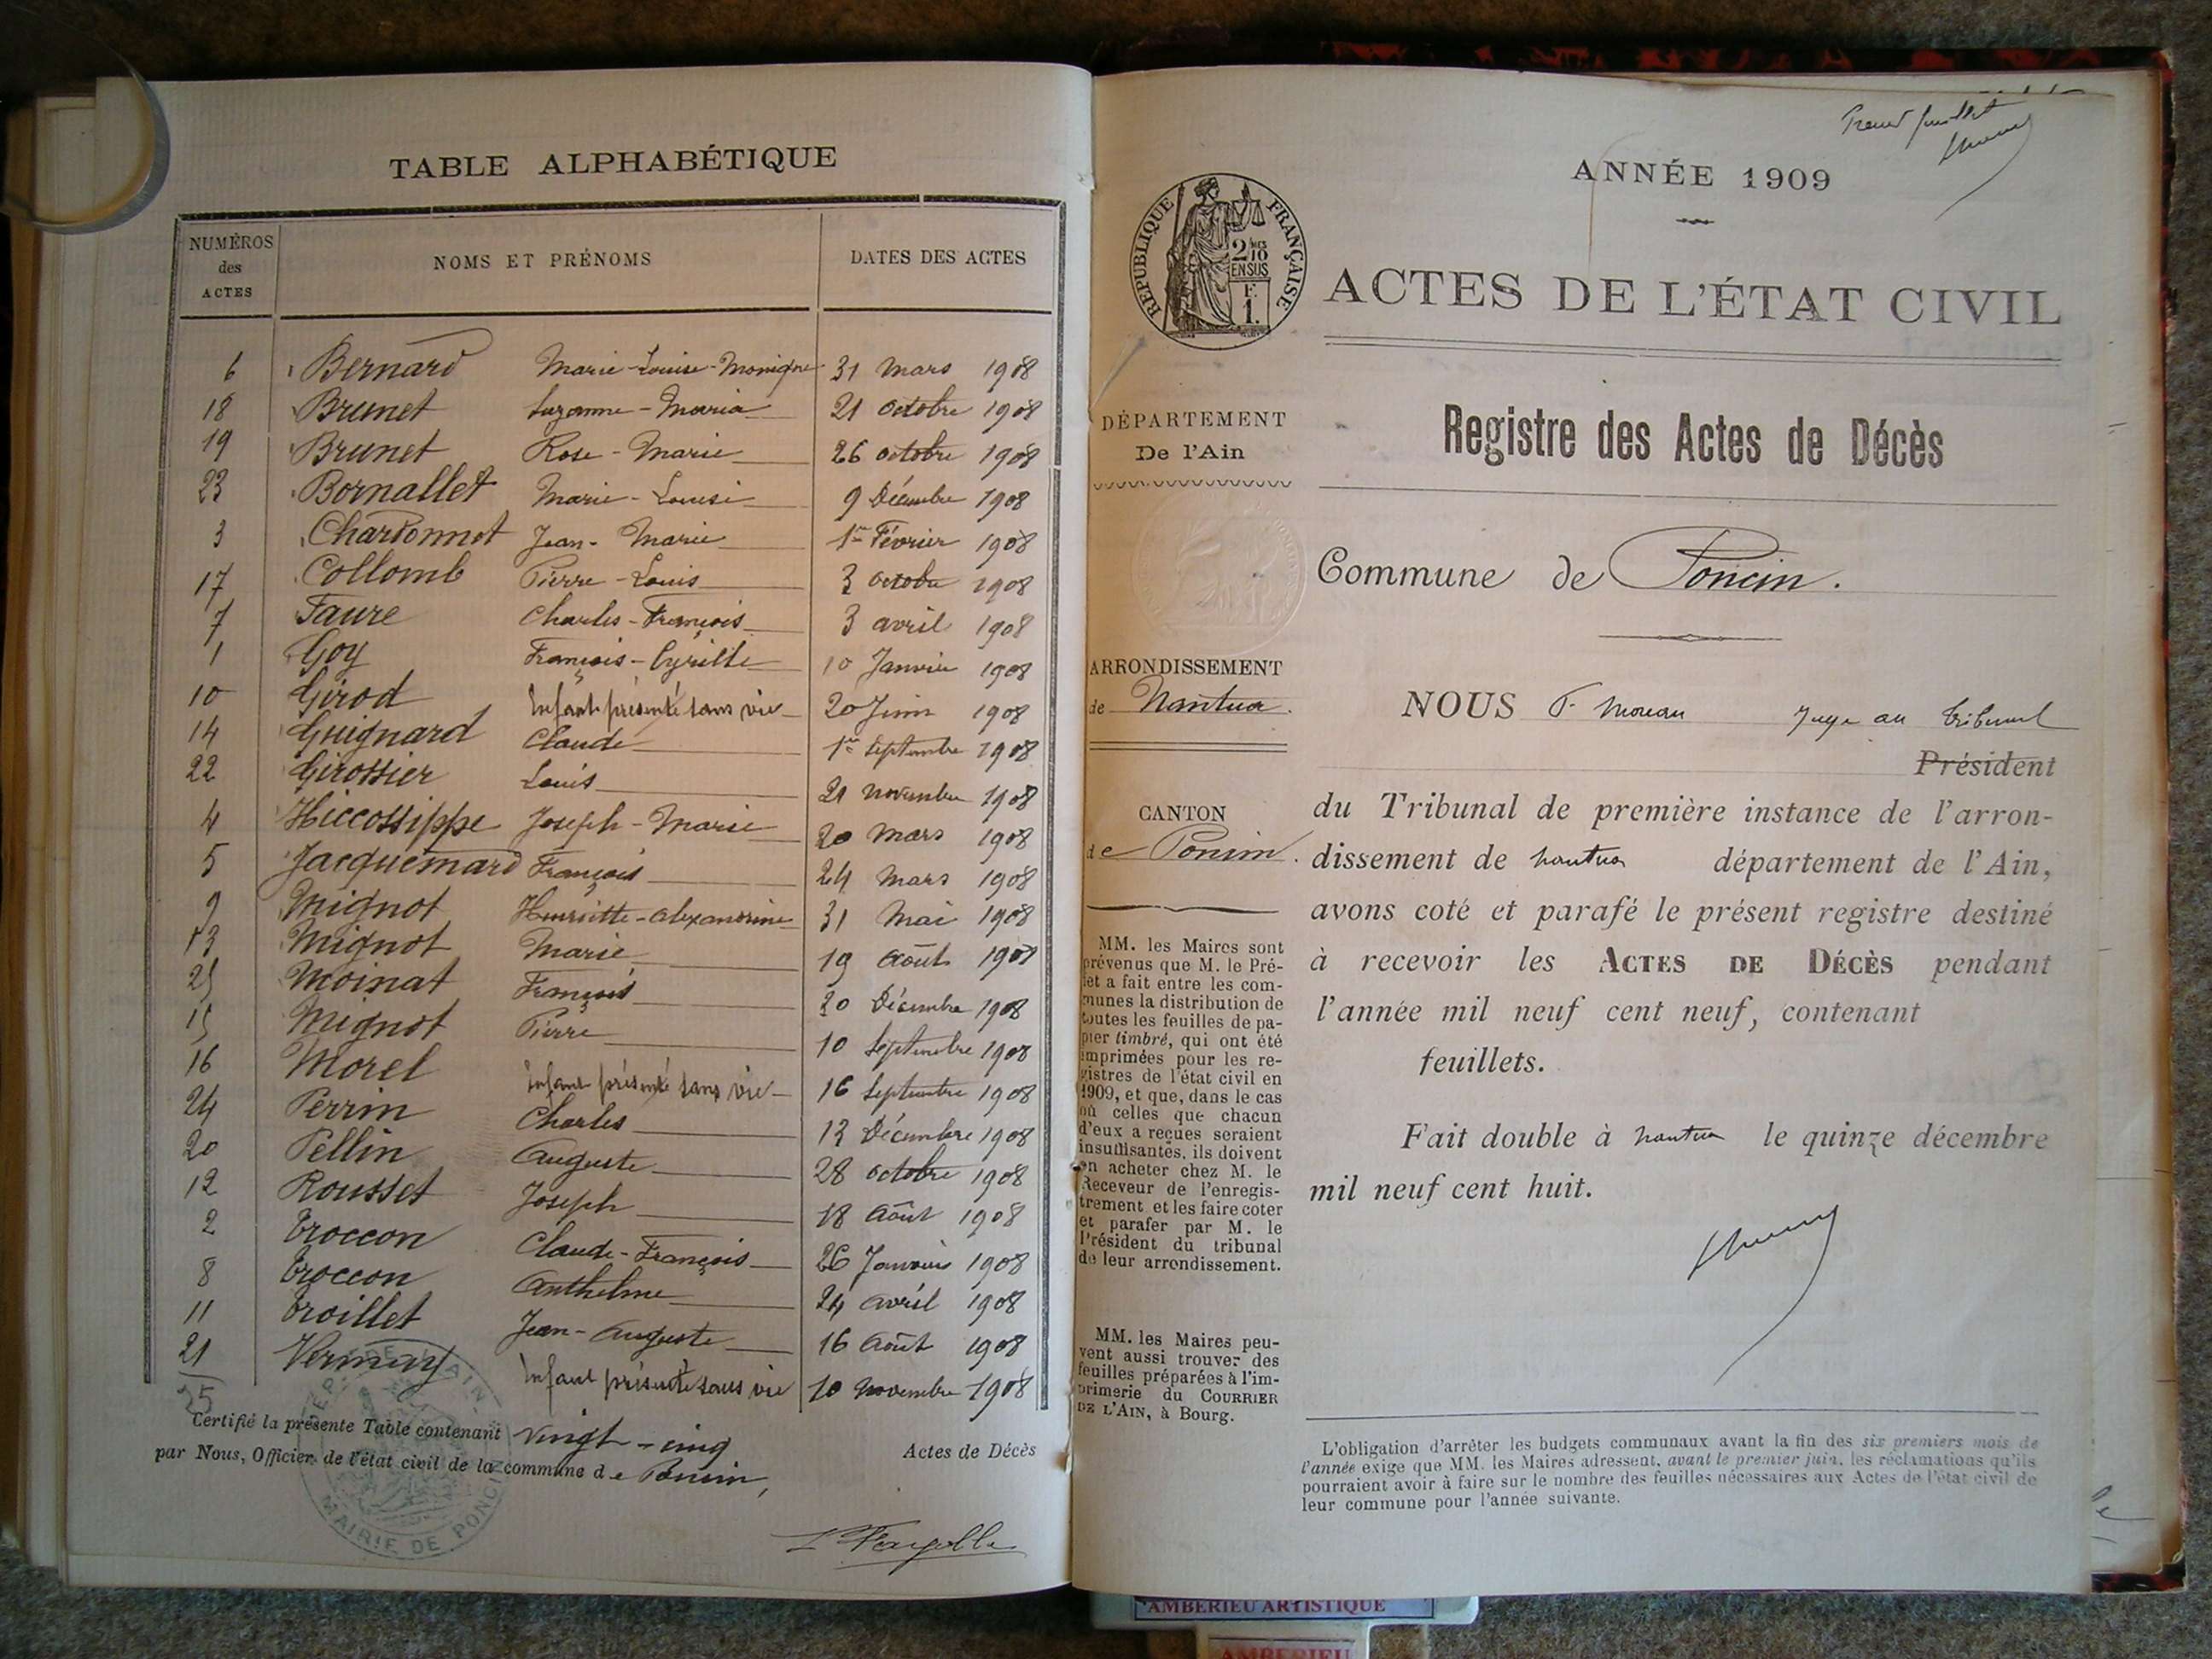 TABLE ALPHABÉTIQUE
NUMÉROS des ACTES NOMS ET PRÉNOMS DATES DES ACTES
6 Bernard Marie-Louise-Monique 31 mars 1908
18 Brunet Suzanne-Maria 21 octobre 1908
19 Brunet Rose-Marie 26 octobre 1908
23 Bornallet Marie-Louise 9 Décembre 1908
3 Chardonnet Jean-Marie 1er Février 1908
17 Collomb Pierre-Louis 3 octobre 1908
7 Faure Charles-François 3 avril 1908
1 Goy François-Cyrille 10 Janvier 1908
10 Girod Enfant présenté sans vie 20 Juin 1908
14 Guignard Claude 1er Septembre 1908
22 Girossier Louis 21 novembre 1908
4 Hiccossippe Joseph-Marie 20 mars 1908
5 Jacquemard François 24 mars 1908
9 Mignot Henriette-Alexandrine 31 Mai 1908
13 Mignot Marie 19 Août 1908
25 Moinat François 20 Décembre 1908
15 Mignot Pierre 10 Septembre 1908
16 Morel Enfant présenté sans vie 16 Septembre 1908
24 Perrin Charles 13 Décembre 1908
20 Pellin Auguste 28 octobre 1908
12 Rousset Joseph 18 Août 1908
2 Troccon Claude-François 26 Janvier 1908
8 Troccon Anthelme 24 avril 1908
11 Troillet Jean-Auguste 16 Août 1908
21 Enfant présenté sans vie 10 novembre 1908
25
Certifié la présente Table contenant vingt-cinq Actes de Décès
par Nous, Officier de l'état civil de la commune de Poncin,
MAIRIE DE PONCIN
ANNÉE 1909
RÉPUBLIQUE FRANÇAISE
2/10 EN SUS
1 F.
ACTES DE L'ÉTAT CIVIL
Registre des Actes de Décès
DÉPARTEMENT
De l'Ain
Commune de Poncin.
ARRONDISSEMENT
de Nantua.
CANTON
de Poncin.
MM. les Maires sont
prévenus que M. le Pré-
fet a fait entre les com-
munes la distribution de
toutes les feuilles de pa-
pier timbré, qui ont été
imprimées pour les re-
gistres de l'état civil en
1909, et que, dans le cas
où celles que chacun
d'eux a reçues seraient
insuffisantes, ils doivent
en acheter chez M. le
Receveur de l'enregis-
trement et les faire coter
et parafer par M. le
Président du tribunal
de leur arrondissement.
MM. les Maires peu-
vent aussi trouver des
feuilles préparées à l'im-
primerie du COURRIER
DE L'AIN, à Bourg.
NOUS P. Moreau Juge au Tribunal
Président
du Tribunal de première instance de l'arron-
dissement de Nantua département de l'Ain,
avons coté et parafé le présent registre destiné
à recevoir les ACTES DE DÉCÈS pendant
l'année mil neuf cent neuf, contenant
feuillets.
Fait double à Nantua le quinze décembre
mil neuf cent huit.
L'obligation d'arrêter les budgets communaux avant la fin des six premiers mois de
l'année exige que MM. les Maires adressent, avant le premier juin, les réclamations qu'ils
pourraient avoir à faire sur le nombre des feuilles nécessaires aux Actes de l'état civil de
leur commune pour l'année suivante.
AMBERIEU ARTISTIQUE
AMBERIEU